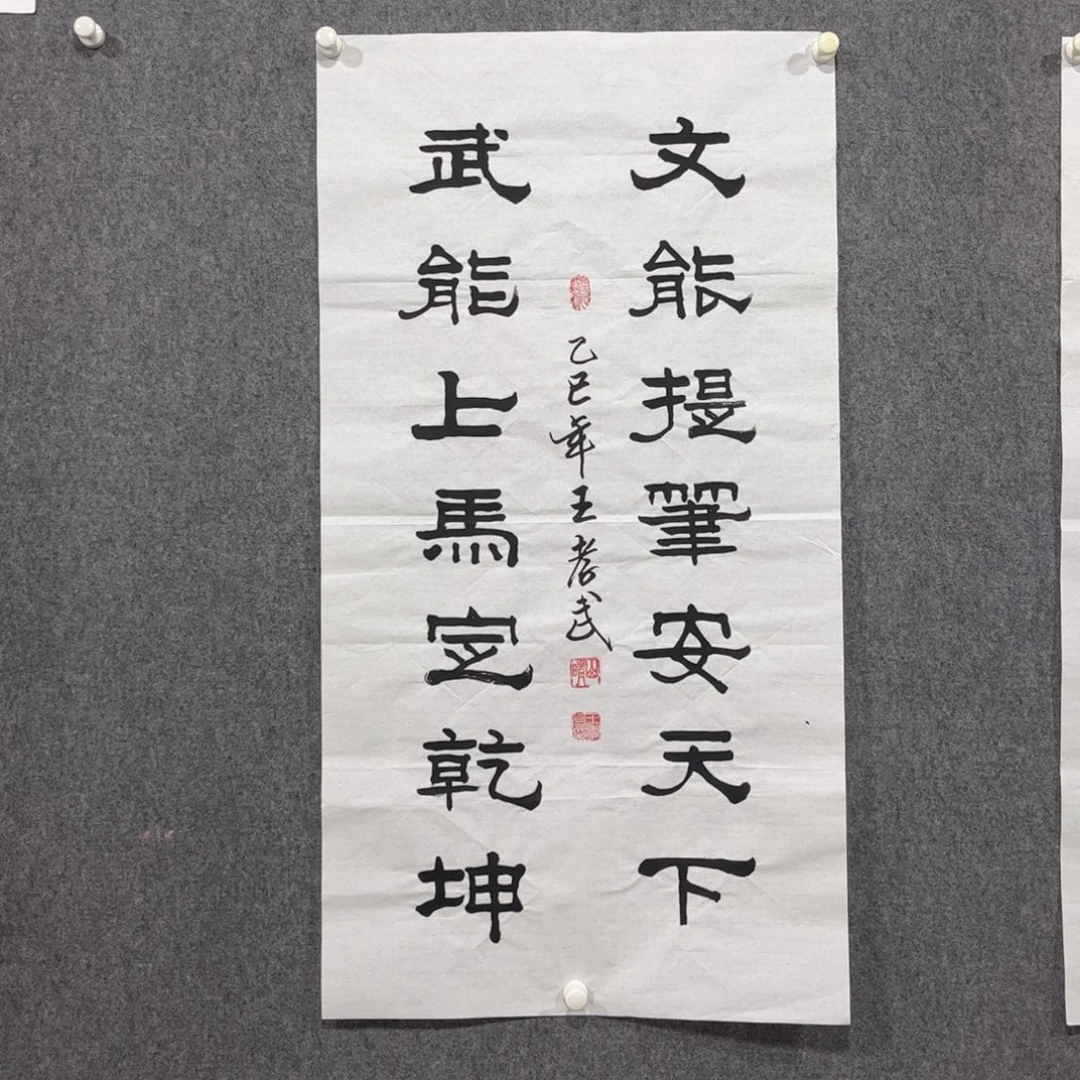 文能提筆安天下
武能上馬定乾坤
乙巳年王孝武